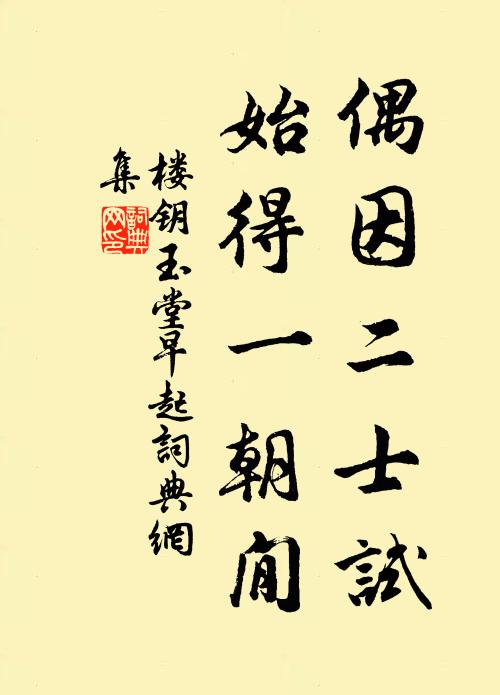 偶因二士試
始得一朝闲
楼钥玉堂早起詞典網
集
詞典网印